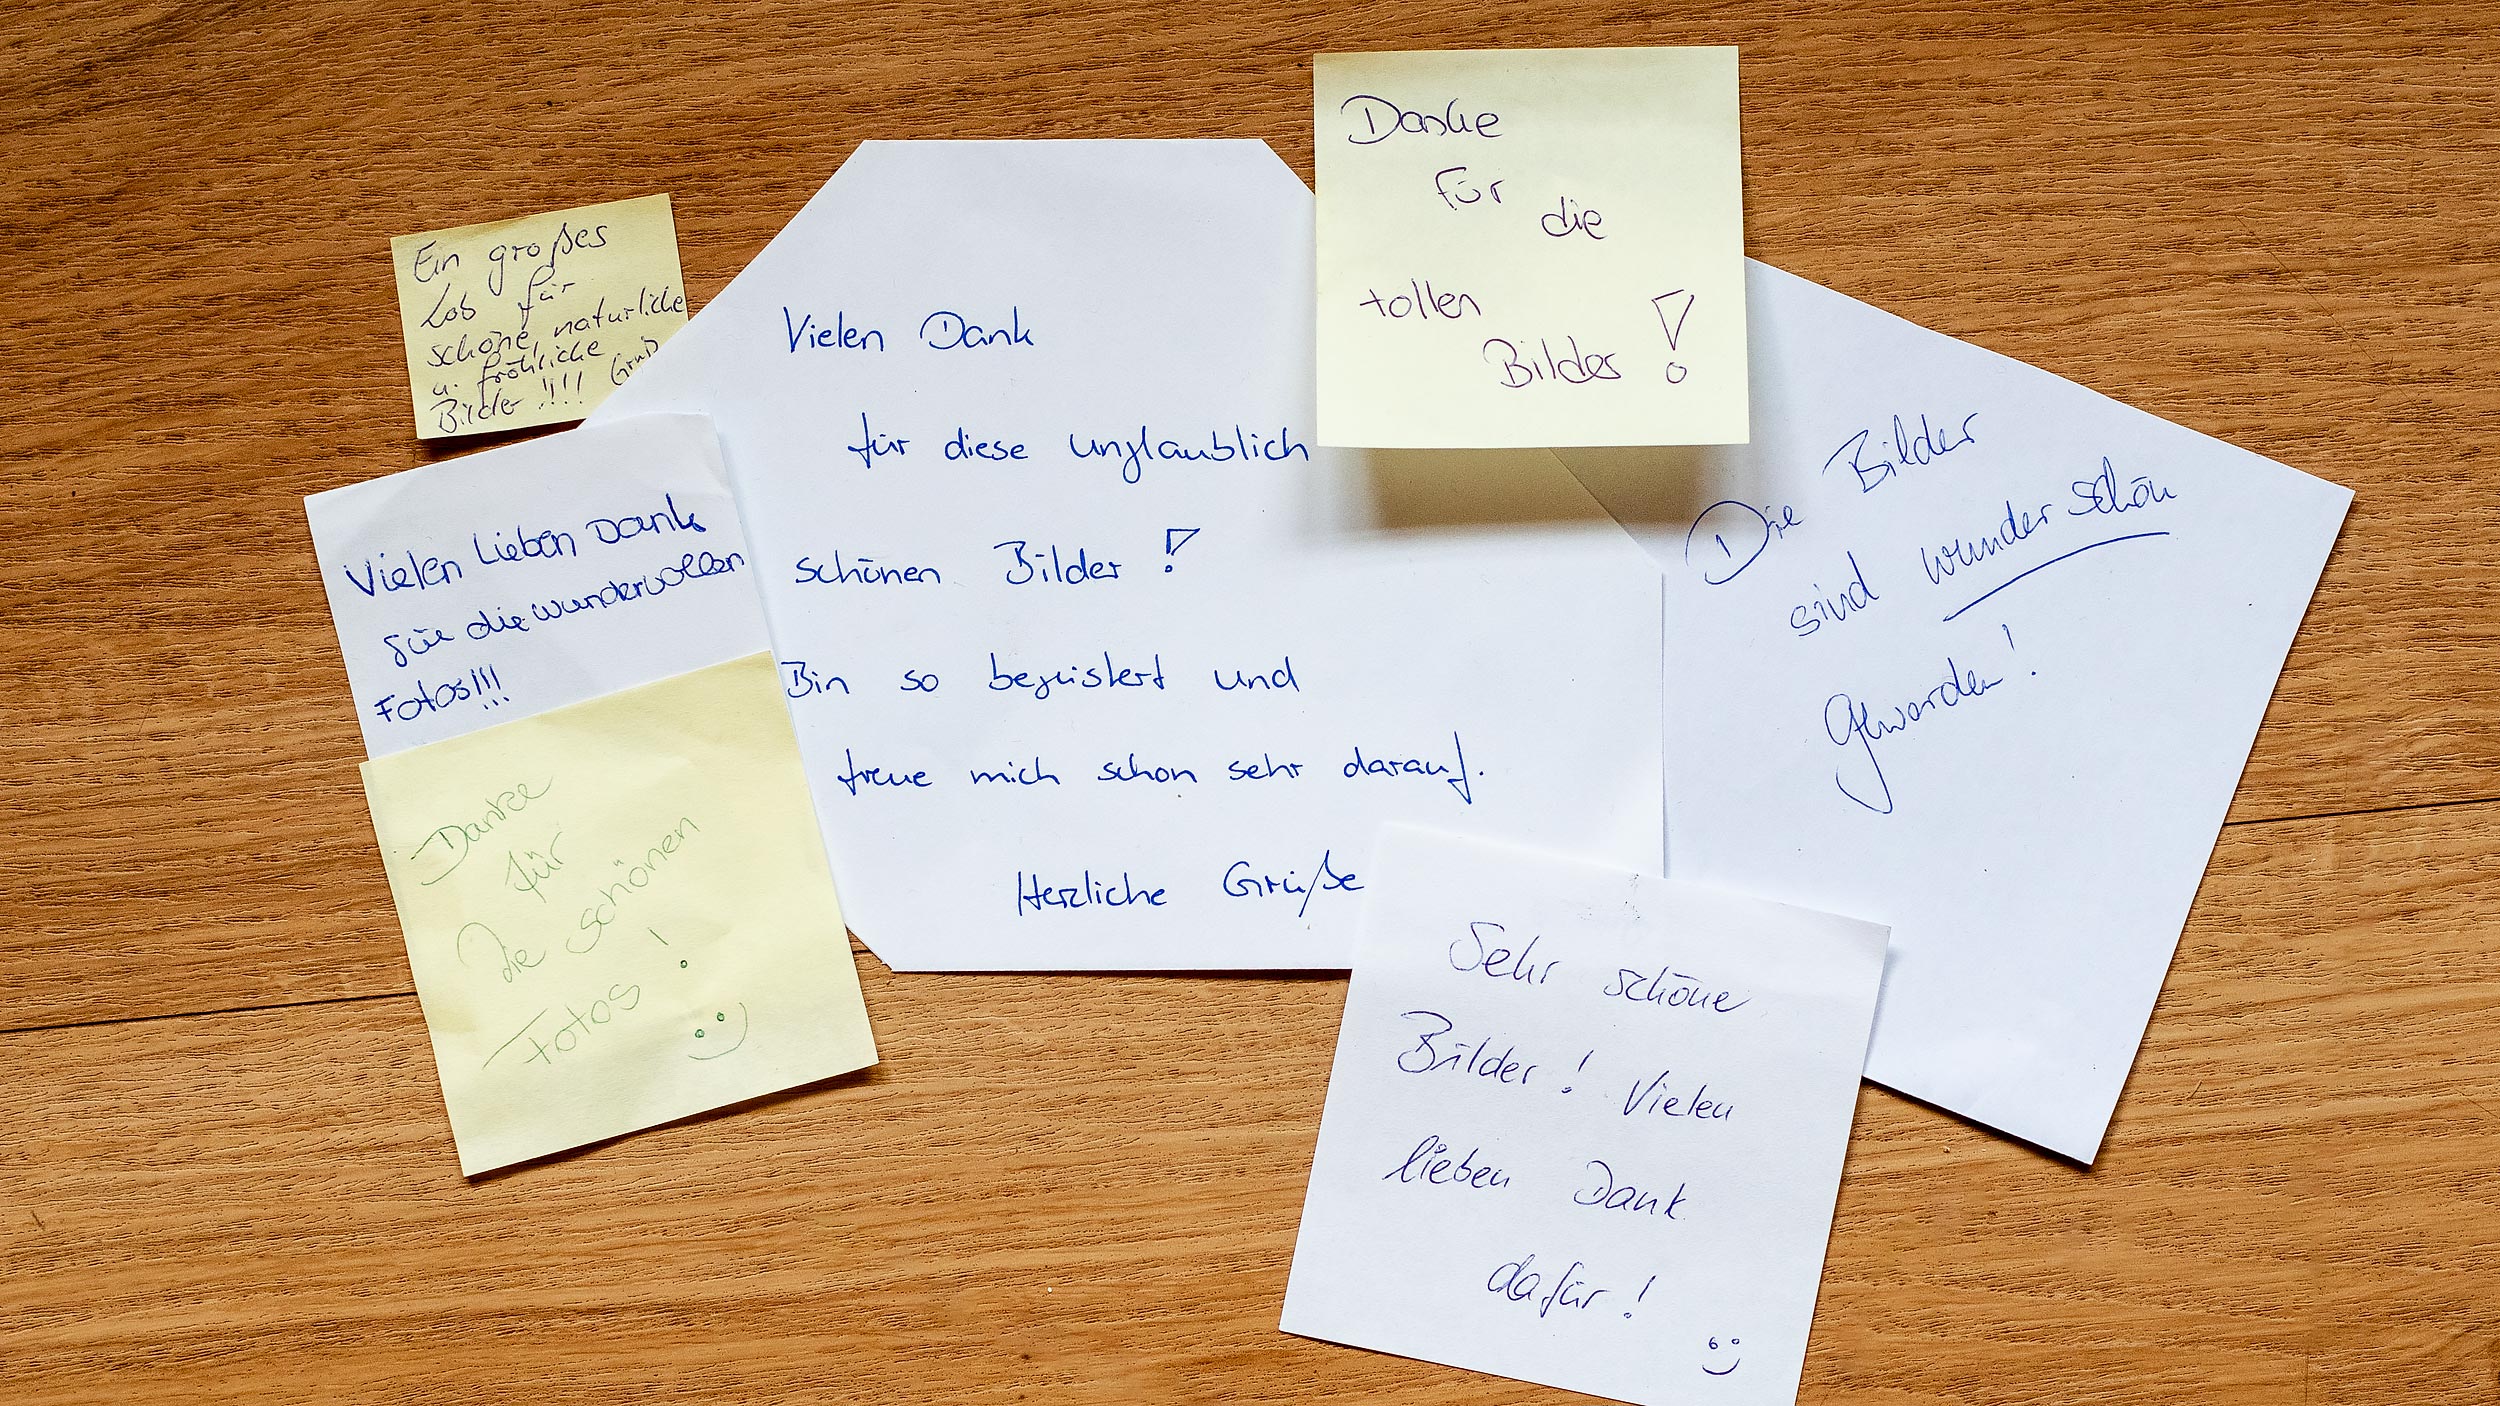 Ein großes
Lob für
schöne, natürliche
u. fröhliche
Bilder!!!! Gruß
Vielen Lieben Dank
für die wundervollen
Fotos!!!
Danke
für
die schönen
Fotos!
Vielen Dank
für diese unglaublich
schönen Bilder!
Bin so begeistert und
freue mich schon sehr darauf.
Herzliche Grüße
Danke
für die
tollen
Bilder!
Die Bilder
sind wunderschön
geworden!
Sehr schöne
Bilder! Vielen
lieben Dank
dafür!